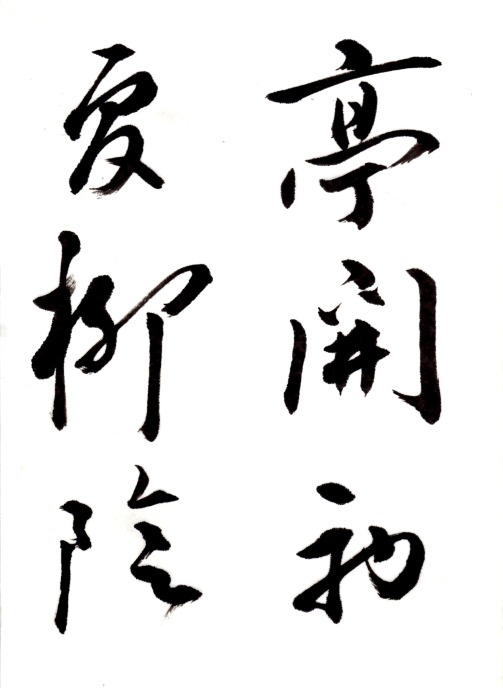 亭開初
夏柳陰